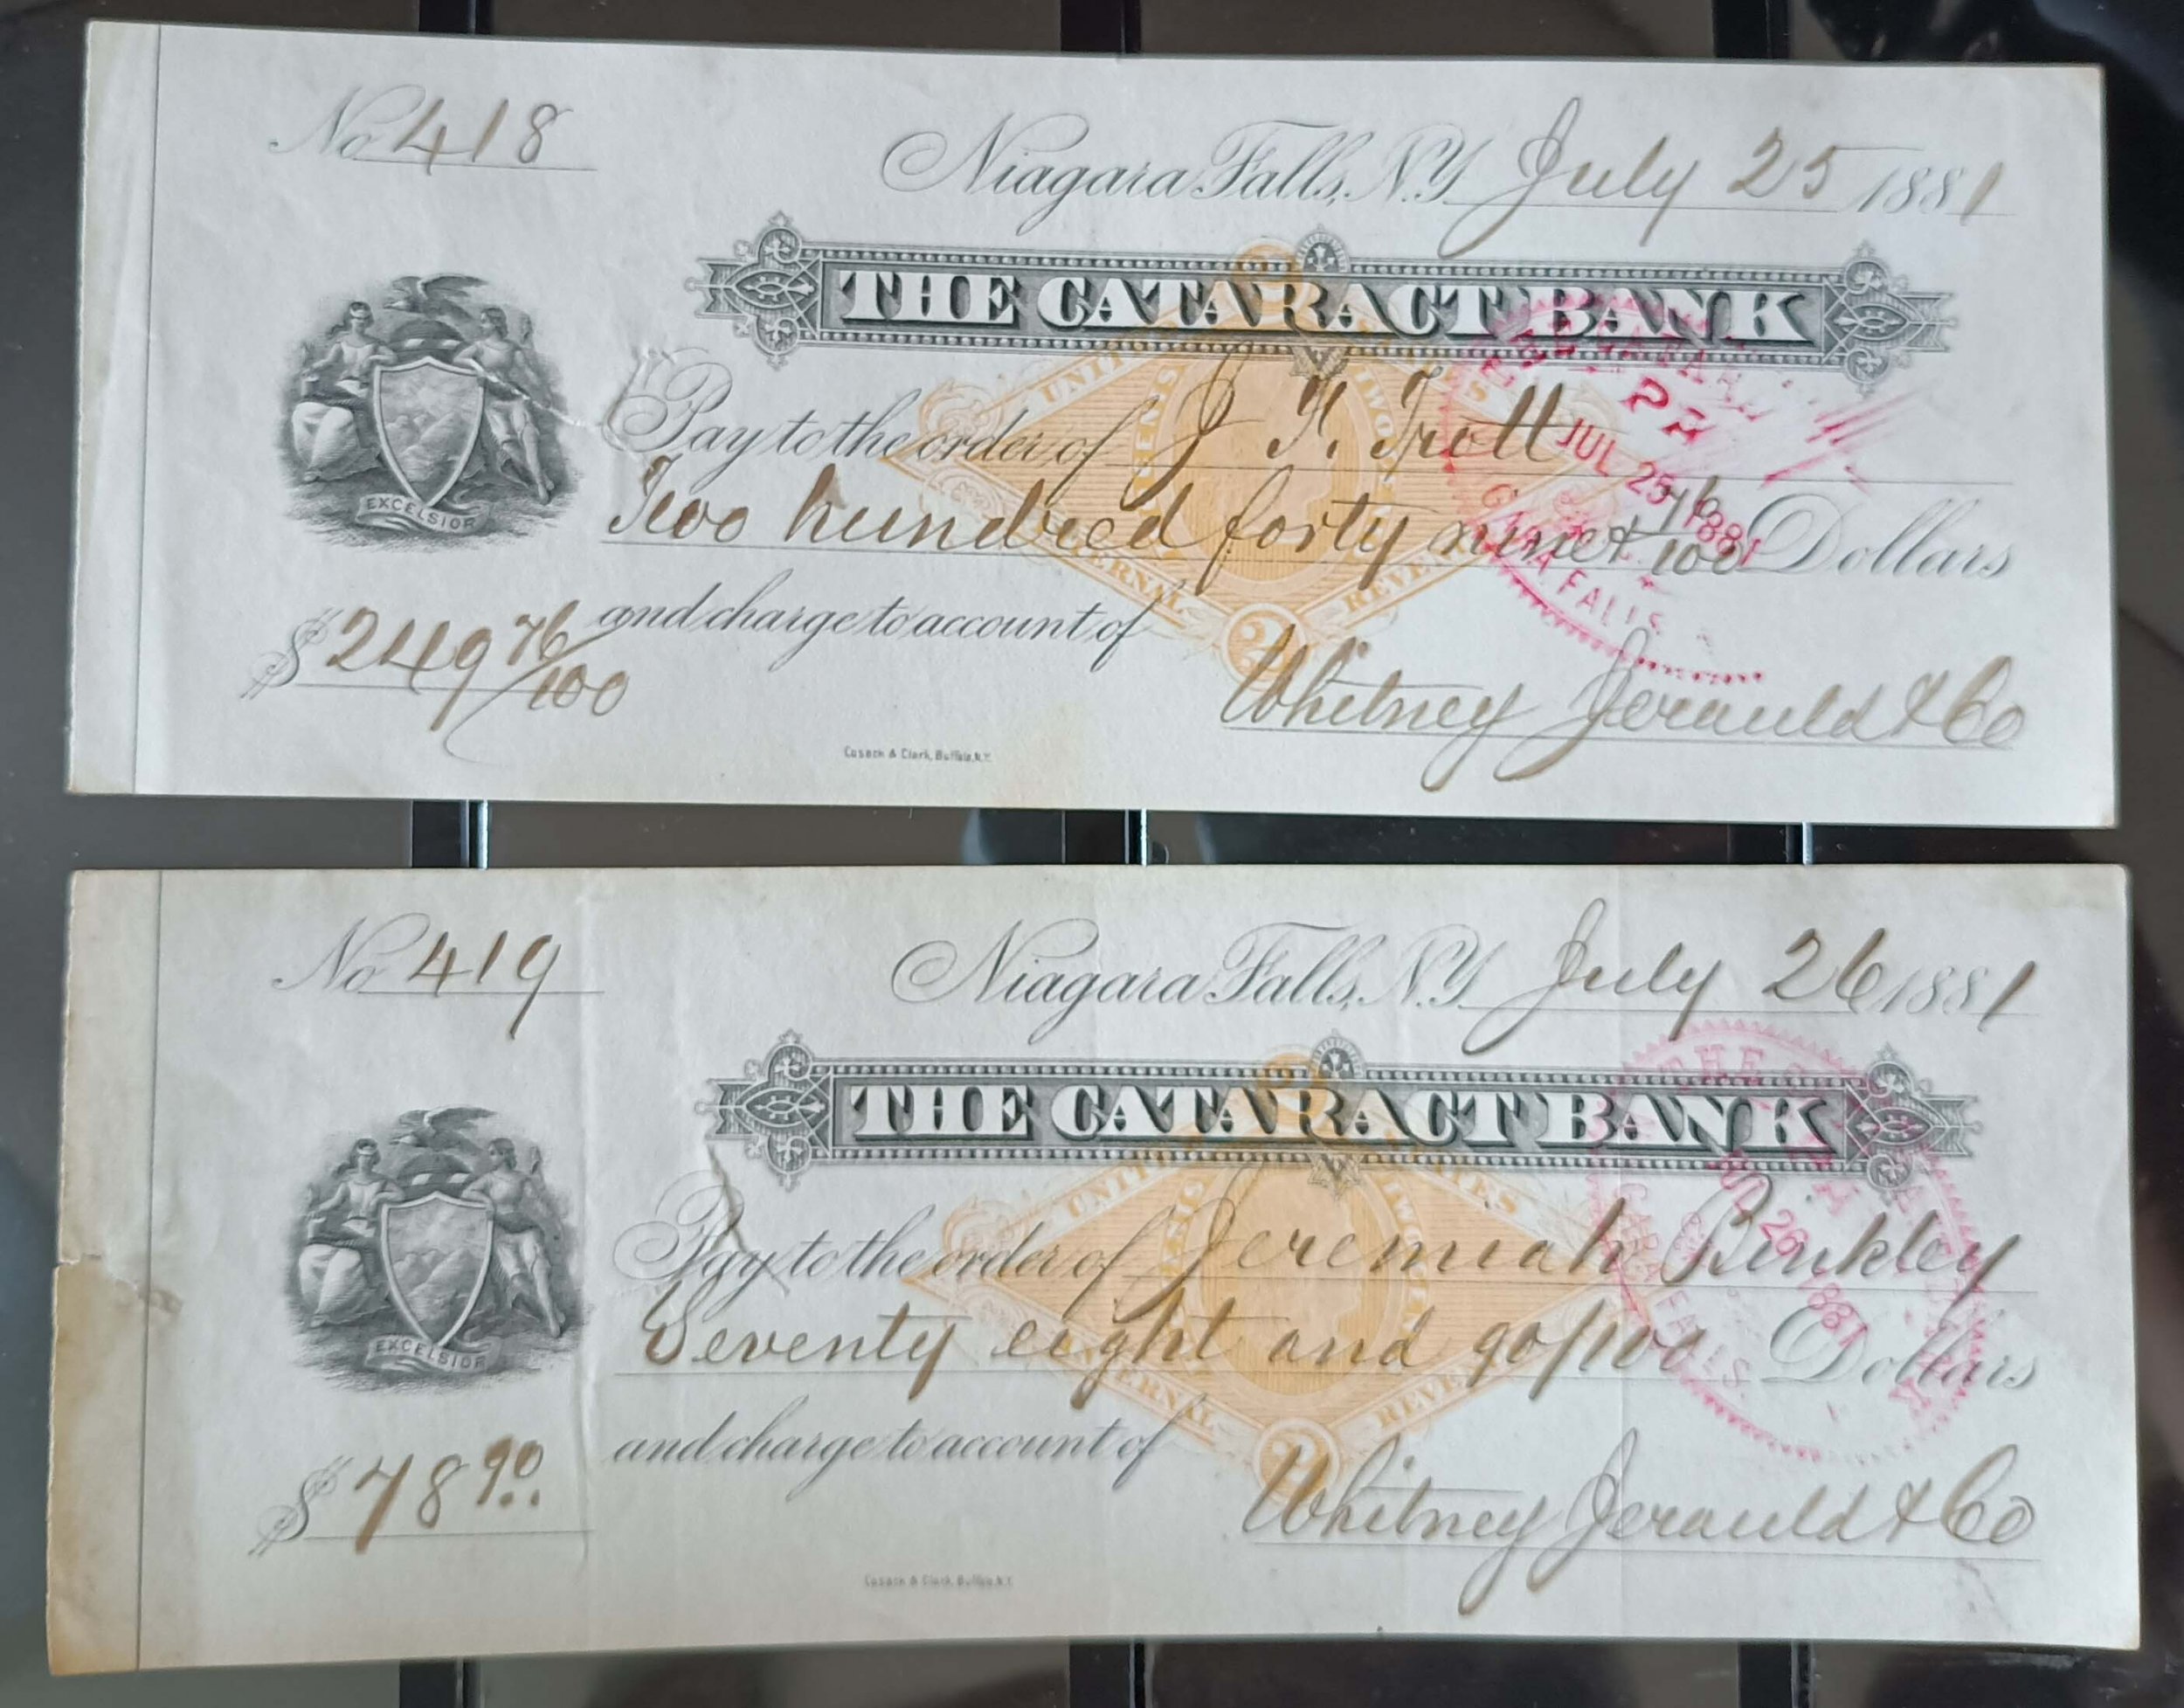 No 418
Niagara Falls, N.Y. July 25 1881
THE CATARACT BANK
UNITED STATES
Pay to the order of J. F. Trott
JUL 25 1881
Two hundred forty nine & 76/100 Dollars
INTERNAL REVENUE
FALLS
EXCELSIOR
$249 76/100
and charge to account of
2
Whitney Jerauld & Co
Cosack & Clark, Buffalo, N.Y.
No 419
Niagara Falls, N.Y. July 26 1881
THE
THE CATARACT BANK
UNITED STATES
Pay to the order of Jeremiah Binkley
JUL 26 1881
Seventy eight and 90/100 Dollars
INTERNAL REVENUE
FALLS.
EXCELSIOR
$78 90
and charge to account of
2
Whitney Jerauld & Co
Cosack & Clark, Buffalo, N.Y.